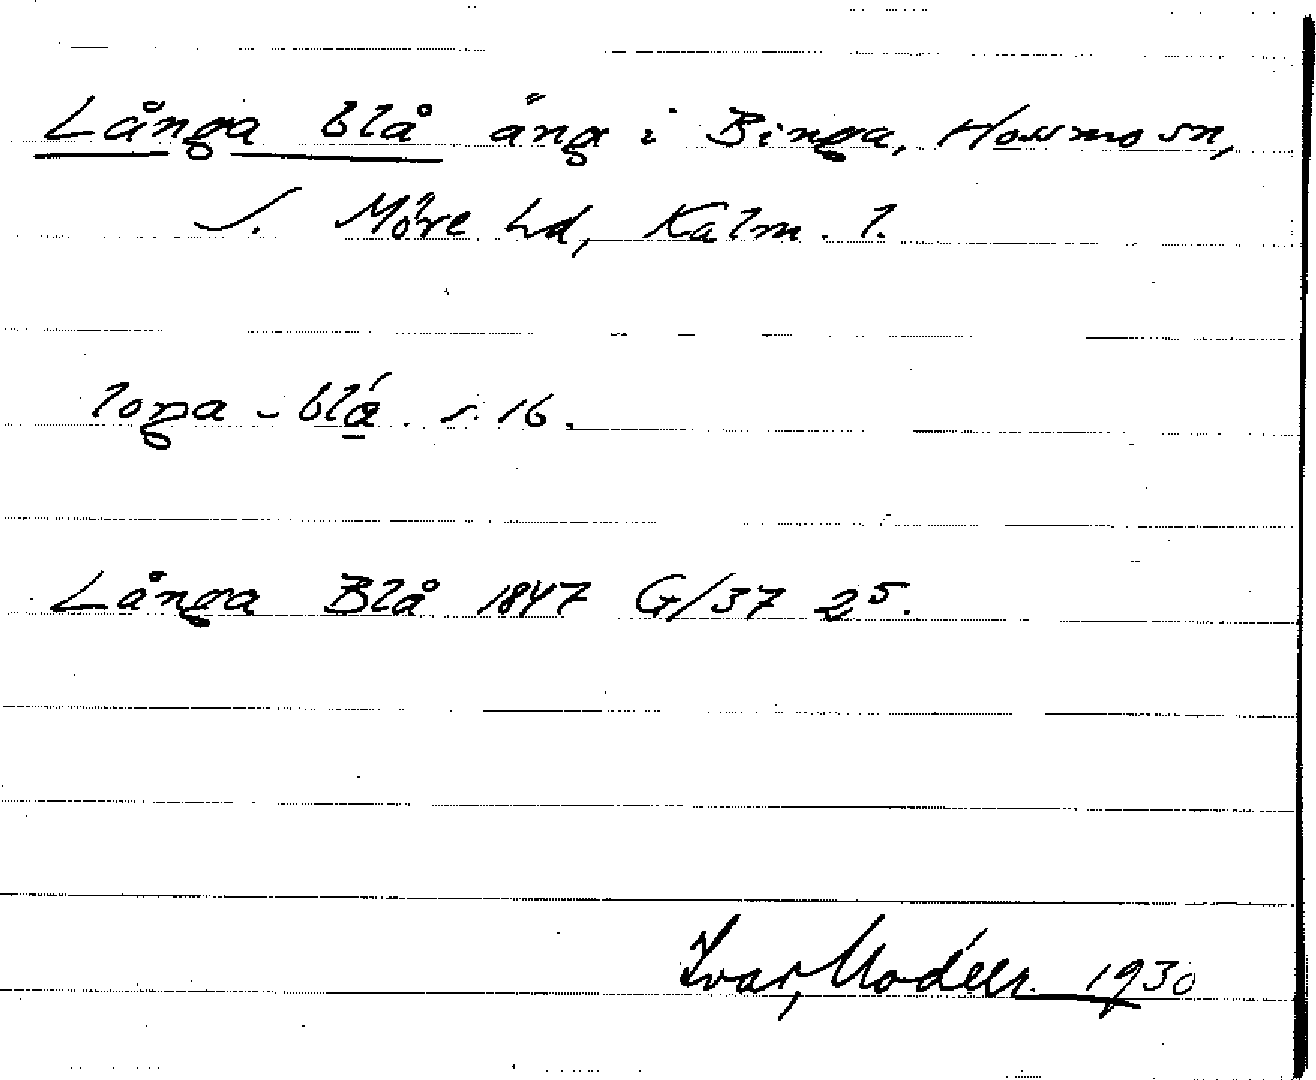 Långa blå äng i Binga, Hossmo sn,
S. Möre hd, Kalm. l.
loŋa - blá. s. 16.
Långa Blå 1847 G/37 2⁵.
Ivar Modéer. 1930